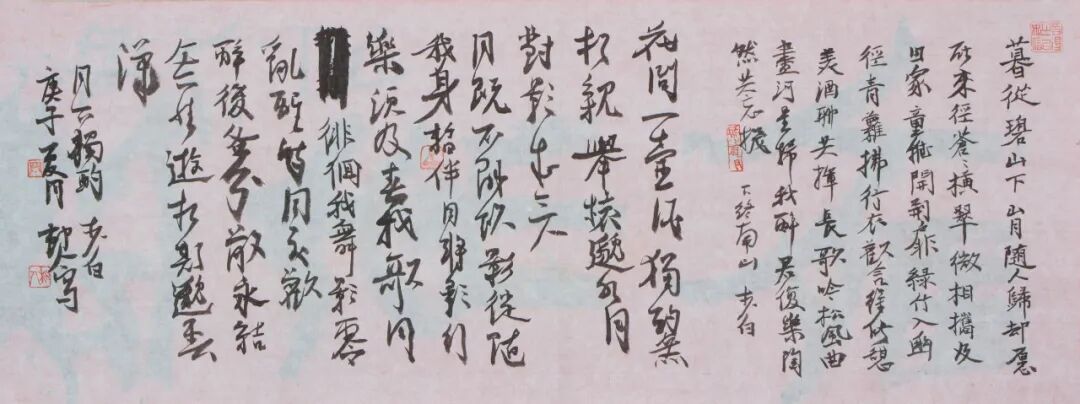 暮從碧山下山月隨人歸却顧
所來徑蒼々橫翠微相攜及
田家童稚開荊扉綠竹入幽
徑青蘿拂行衣歡言得所憩
美酒聊共揮長歌吟松風曲
盡河星稀我醉君復樂陶
然共忘機 下終南山 李白
花間一壺酒獨酌無
相親舉杯邀明月
對影成三人
月既不解飲影徒隨
我身暫伴月將影行
樂須及春我歌月
徘徊我舞影零
亂醒時同交歡
醉後各分散永結
無情遊相期邈雲
漢
月下獨酌 李白
庚子夏月 寫